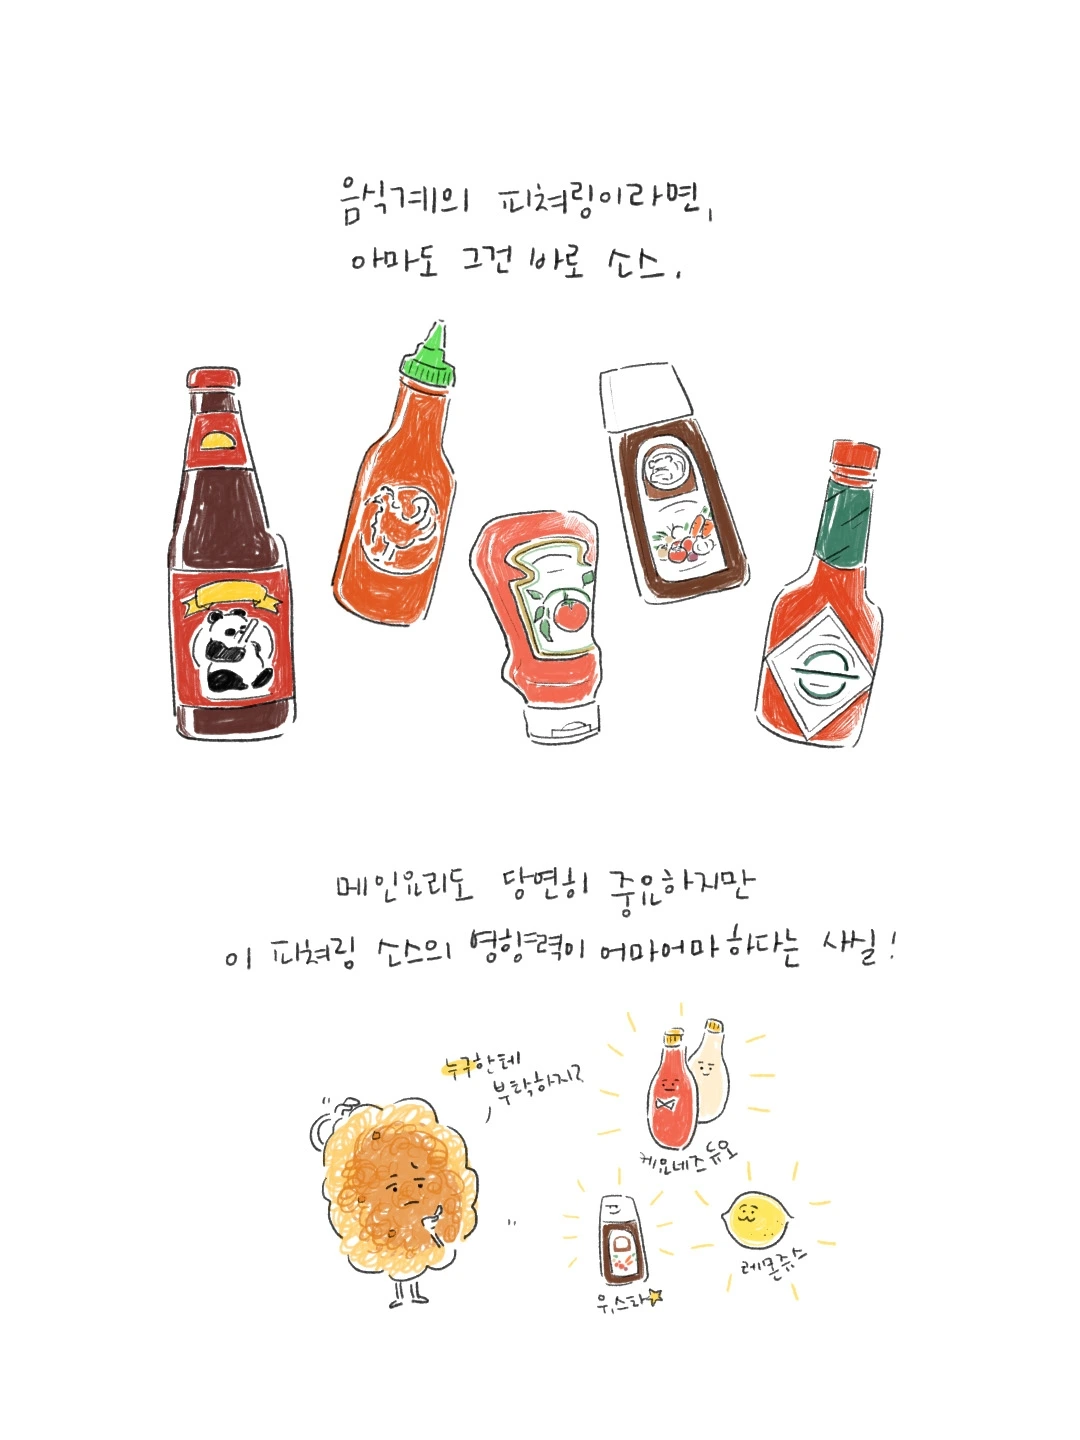 음식계의 피쳐링이라면,
아마도 그건 바로 소스.
메인요리도 당연히 중요하지만
이 피쳐링 소스의 영향력이 어마어마하다는 사실!
누구한테
부탁하지?
케요네즈듀오
우,스타
레몬쥬스